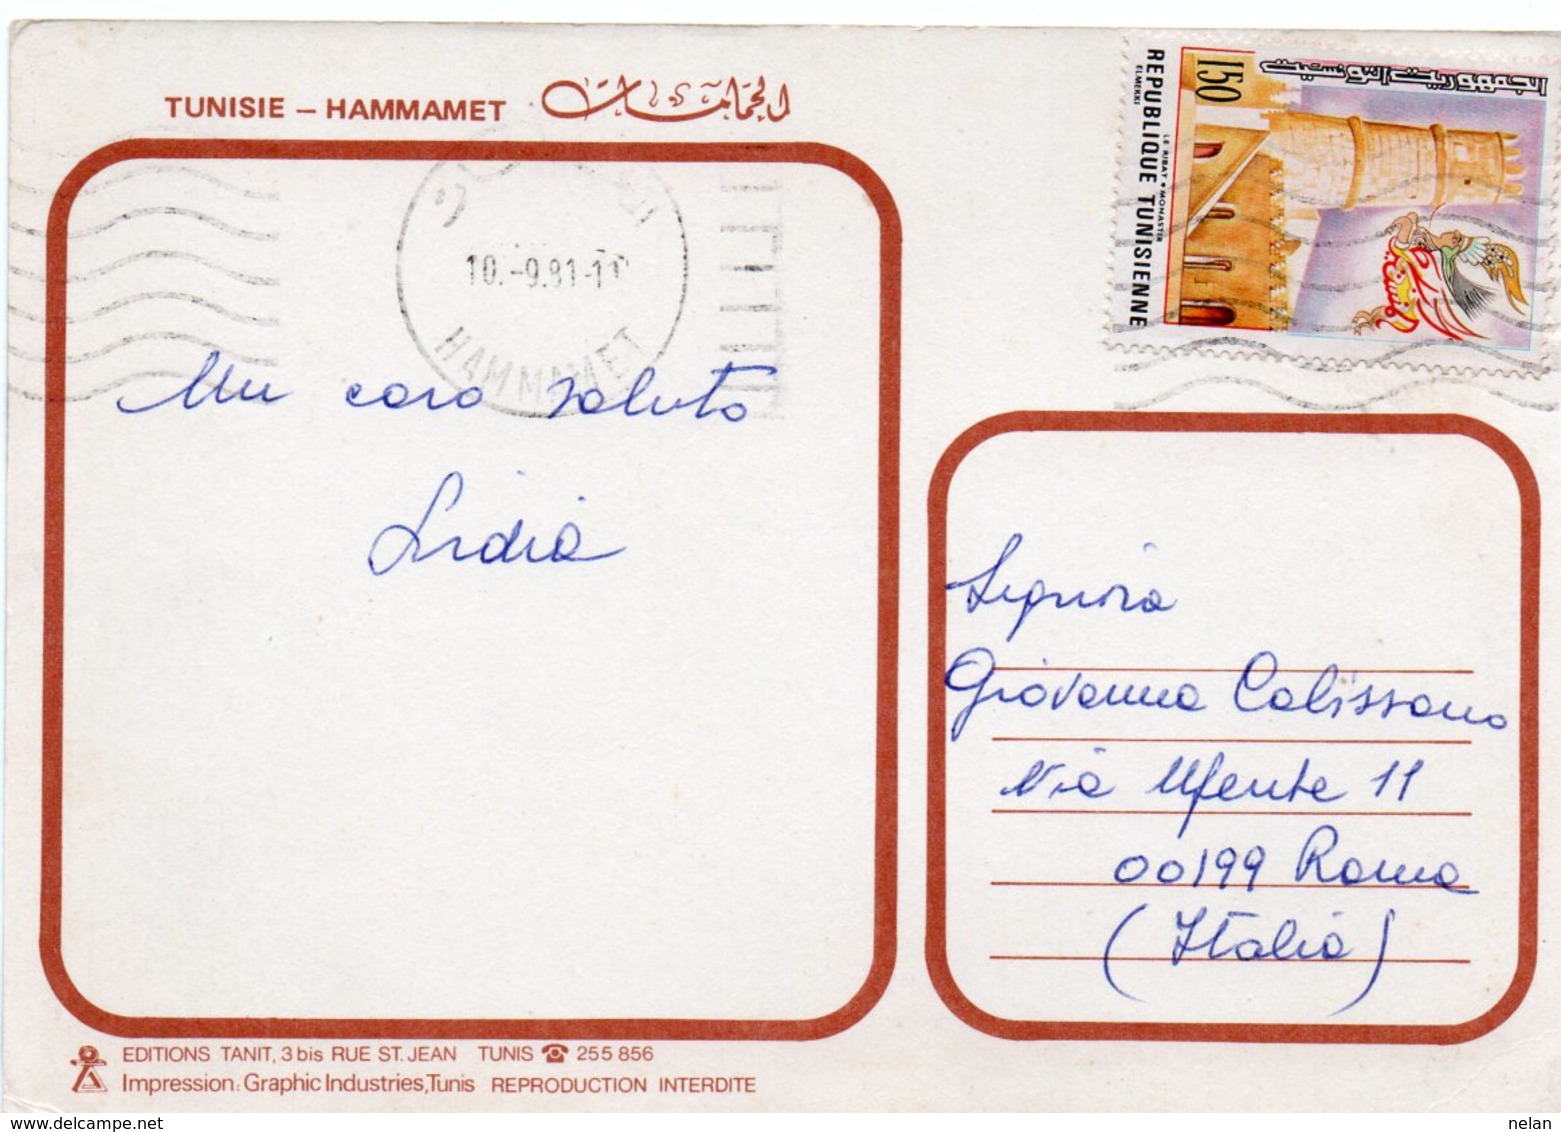 TUNISIE – HAMMAMET الحمامات
10.-9.81-1
HAMMAMET
150
الجمهورية التونسية
REPUBLIQUE TUNISIENNE
LE RIBAT • MONASTIR
ELMEKKI
Un caro saluto
Lidia
Signora
Giovanna Calissano
Via Ufente 11
00199 Roma
(Italia)
EDITIONS TANIT, 3 bis RUE ST. JEAN TUNIS ☎ 255 856
Impression: Graphic Industries, Tunis REPRODUCTION INTERDITE
delcampe.net
nelan